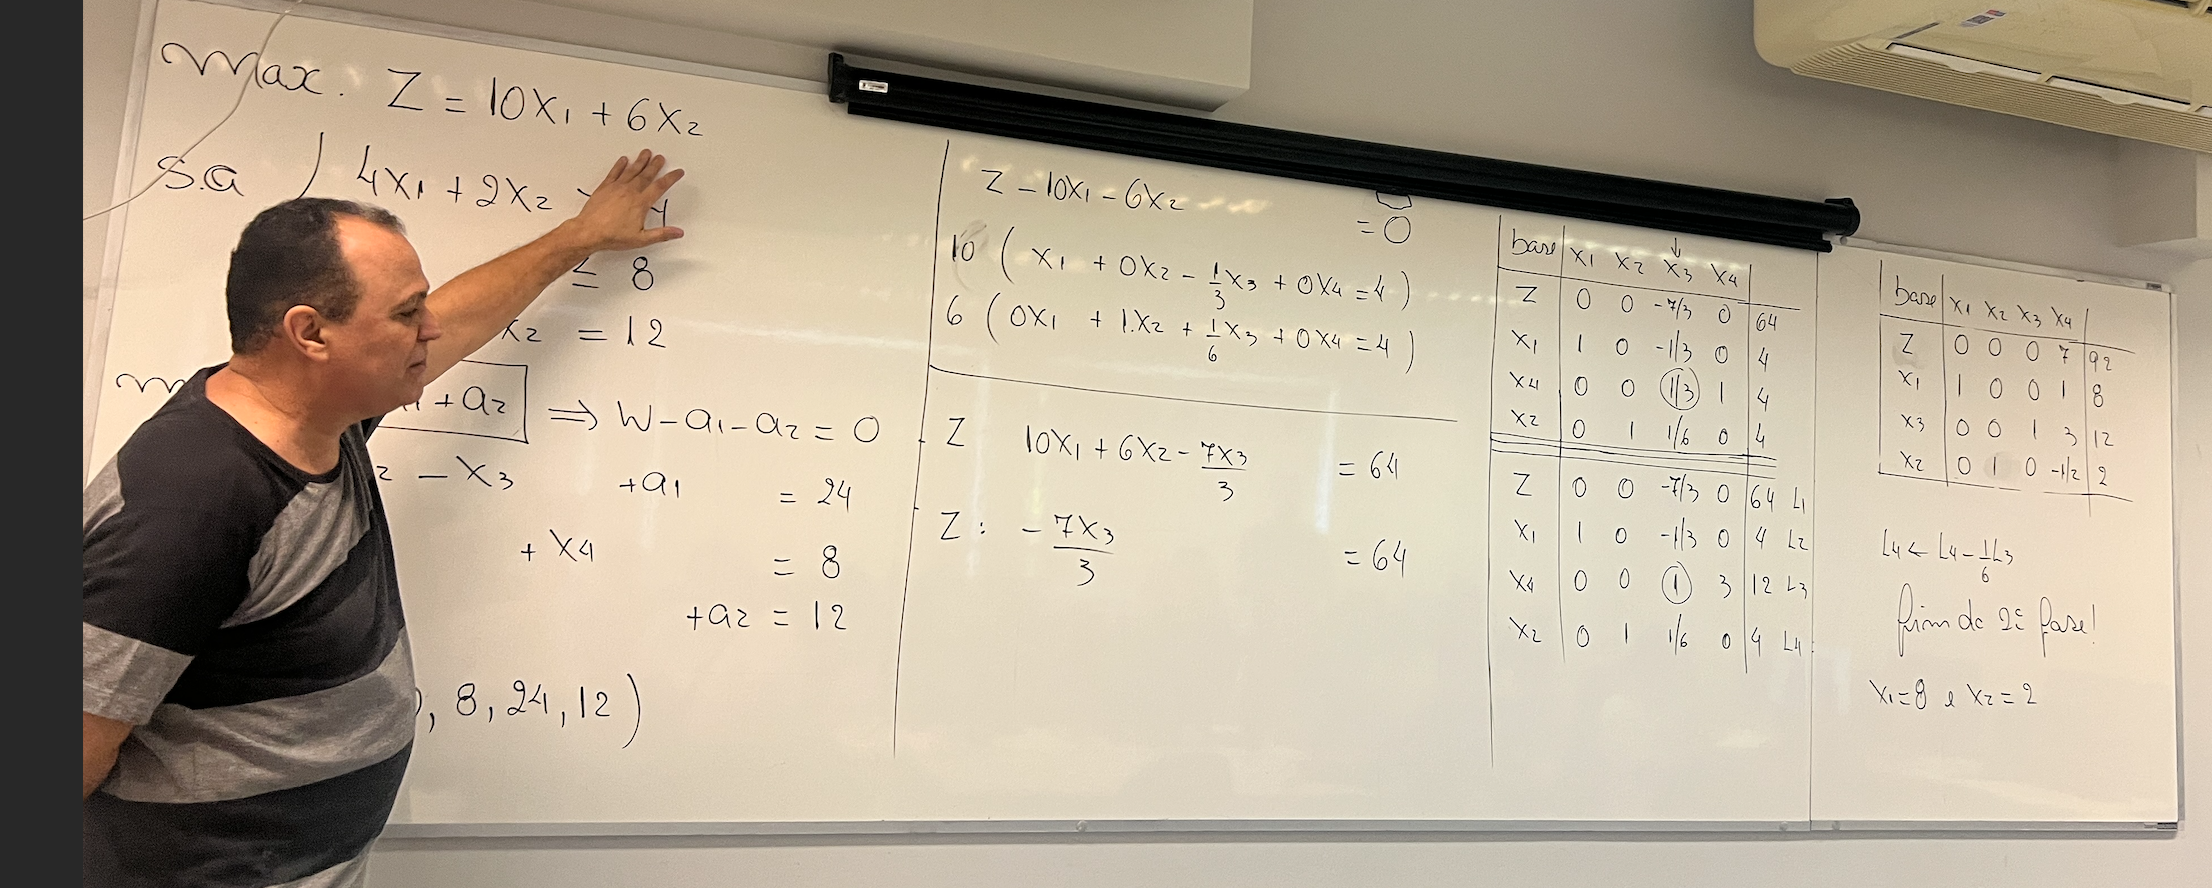 Max. Z = 10X1 + 6X2
s.a 4X1 + 2X2
≤ 8
X2 = 12
+a2 ⇒ W-a1-a2 = 0
2 - X3 +a1 = 24
+ X4 = 8
+a2 = 12
, 8, 24, 12)
Z - 10X1 - 6X2 = 0
10 ( X1 + 0X2 - 1/3 X3 + 0X4 = 4 )
6 ( 0X1 + 1.X2 + 1/6 X3 + 0X4 = 4 )
Z 10X1 + 6X2 - 7X3/3 = 64
Z: - 7X3/3 = 64
base X1 X2 X3 X4
Z 0 0 -7/3 0 64
X1 1 0 -1/3 0 4
X4 0 0 1/3 1 4
X2 0 1 1/6 0 4
Z 0 0 -7/3 0 64 L1
X1 1 0 -1/3 0 4 L2
X4 0 0 1 3 12 L3
X2 0 1 1/6 0 4 L4
base X1 X2 X3 X4
Z 0 0 0 7 92
X1 1 0 0 1 8
X3 0 0 1 3 12
X2 0 1 0 -1/2 2
L4 ← L4 - 1/6 L3
fim da 2ª fase!
X1 = 8 e X2 = 2